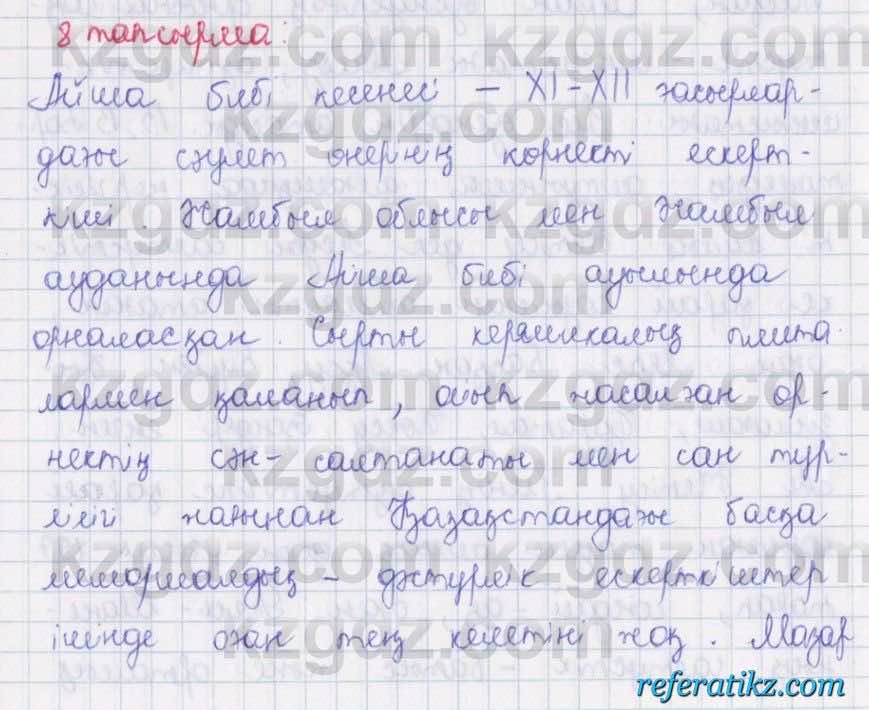 8 тапсырма:
Айша бибі кесенесі – XI–XII ғасырлар-
дағы сәулет өнерінің көрнекті ескерт-
кіші. Жамбыл облысы мен Жамбыл
ауданында Айша бибі ауылында
орналасқан. Сырты керамикалық плита
лармен қаланып, ойып жасалған өр-
нектің сән-салтанаты мен сан түр-
лілігі жағынан Қазақстандағы басқа
мемориалдық – дәстүрлік ескерткіштер
ішінде оған тең келетіні жоқ. Мазар
kzgdz.com
referatikz.com